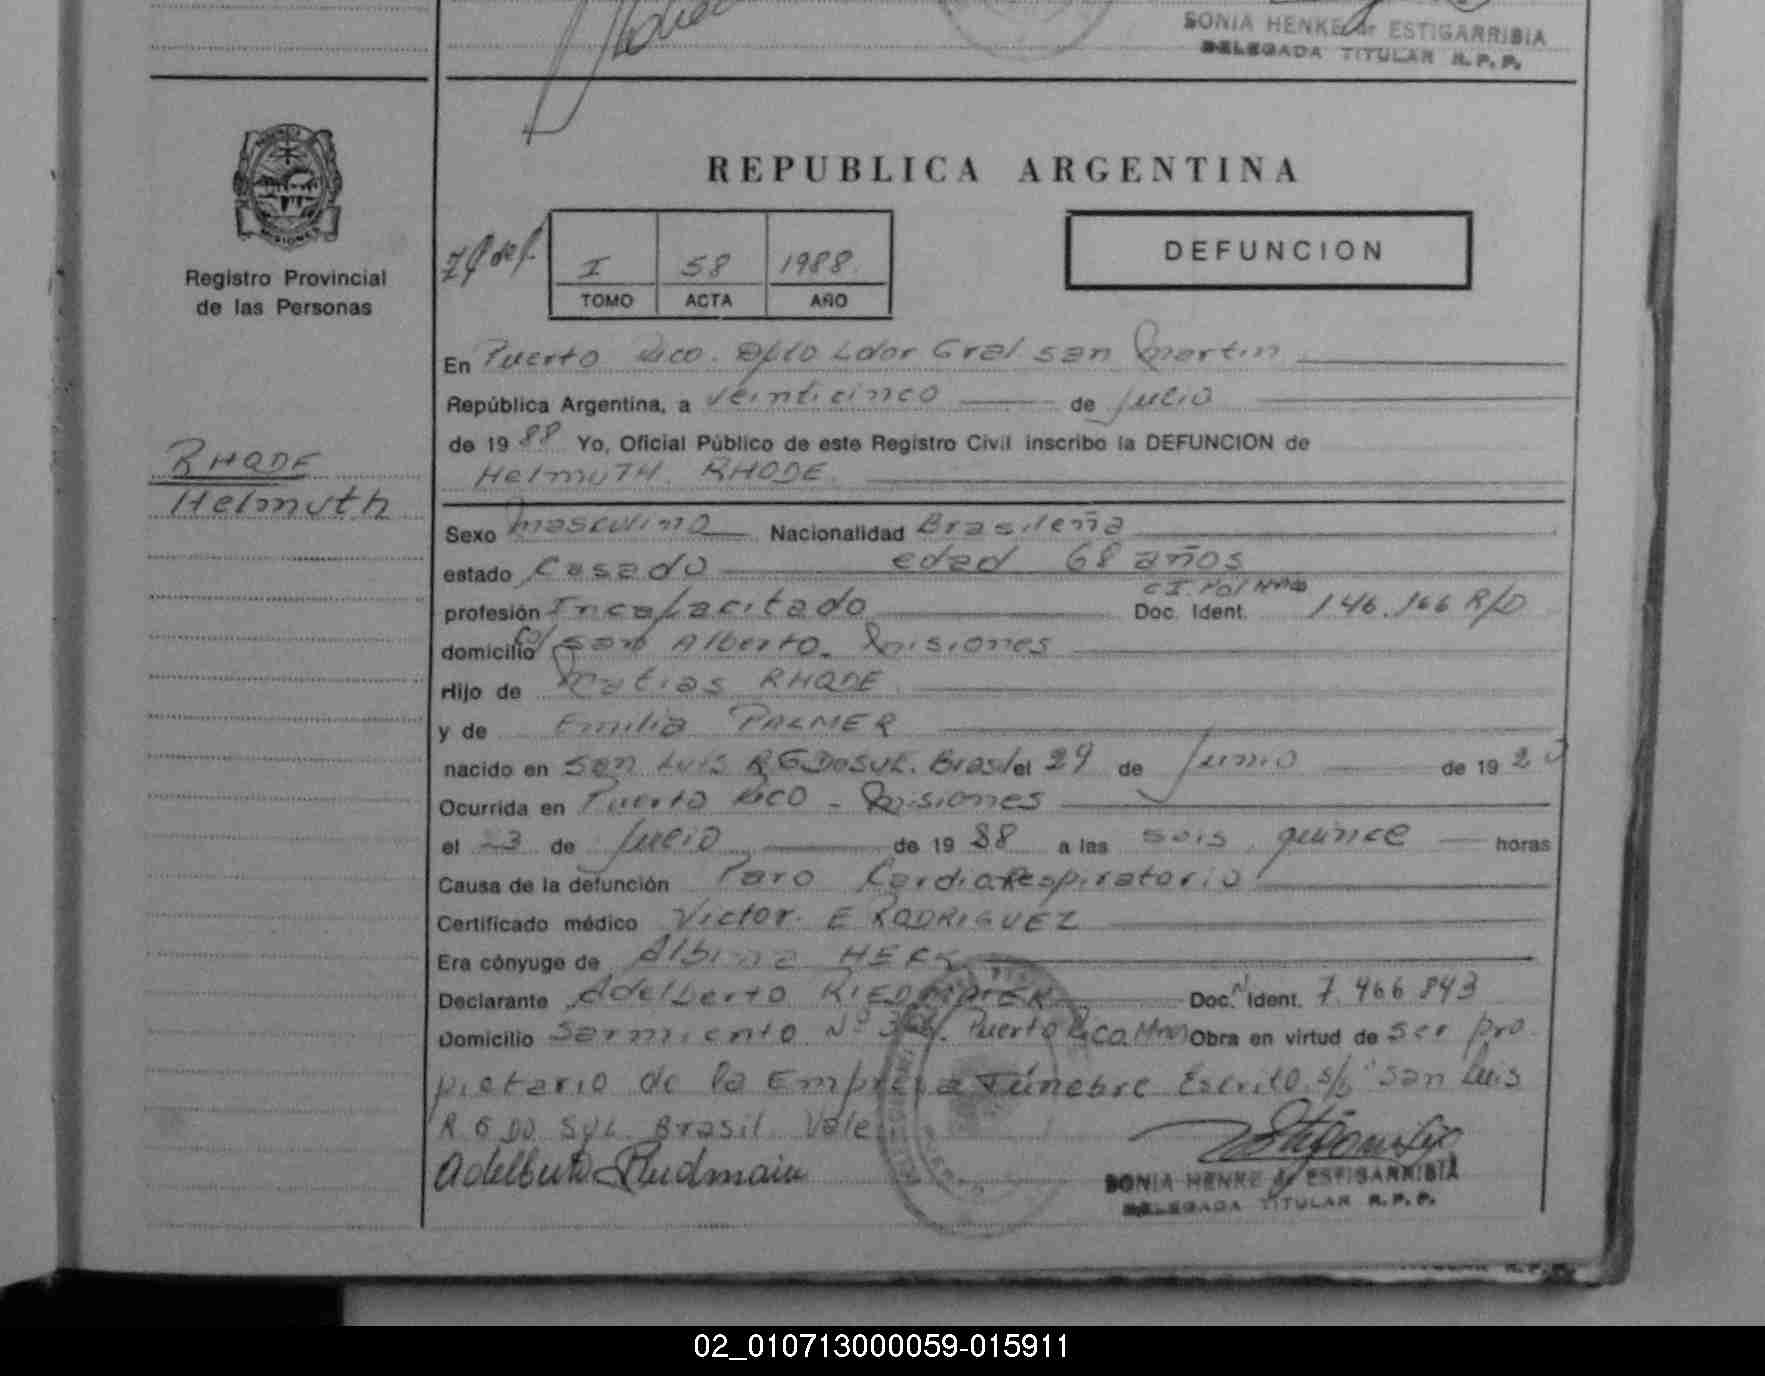 SONIA HENKE de ESTIGARRIBIA
DELEGADA TITULAR R.P.P.
PROVINCIA
MISIONES
Registro Provincial
de las Personas
RHODE
Helmuth
REPUBLICA ARGENTINA
I 58 1988
TOMO ACTA AÑO
DEFUNCION
En Puerto Rico. Dpto Ldor Gral San Martin
República Argentina, a veinticinco de Julio
de 1988 Yo, Oficial Público de este Registro Civil inscribo la DEFUNCION de
HelmuTH. RHODE
Sexo masculino Nacionalidad Brasileña
estado Casado edad 68 años
profesión Incapacitado Doc. Ident. C.I. Pol Mnes 146.166 R/D
domicilio Co/ San Alberto. Misiones
Hijo de Matias RHODE
y de Emilia PALMER
nacido en San Luis RGDOSUL. Brasil el 29 de Junio de 1920
Ocurrida en Puerto Rico - Misiones
el 23 de Julio de 1988 a las seis quince horas
Causa de la defunción Paro Cardiorespiratorio
Certificado médico Victor. E RODRIGUEZ
Era cónyuge de Albina HECK
Declarante Adelberto Doc. Ident. 7.466.843
Domicilio Sarmiento Nº Puerto Rico. Mnes Obra en virtud de ser pro
pietario de la Empresa Fúnebre Escrito s/b San Luis
R G DO SUL Brasil Vale
SONIA HENKE de ESTIGARRIBIA
DELEGADA TITULAR R.P.P.
02_010713000059-015911